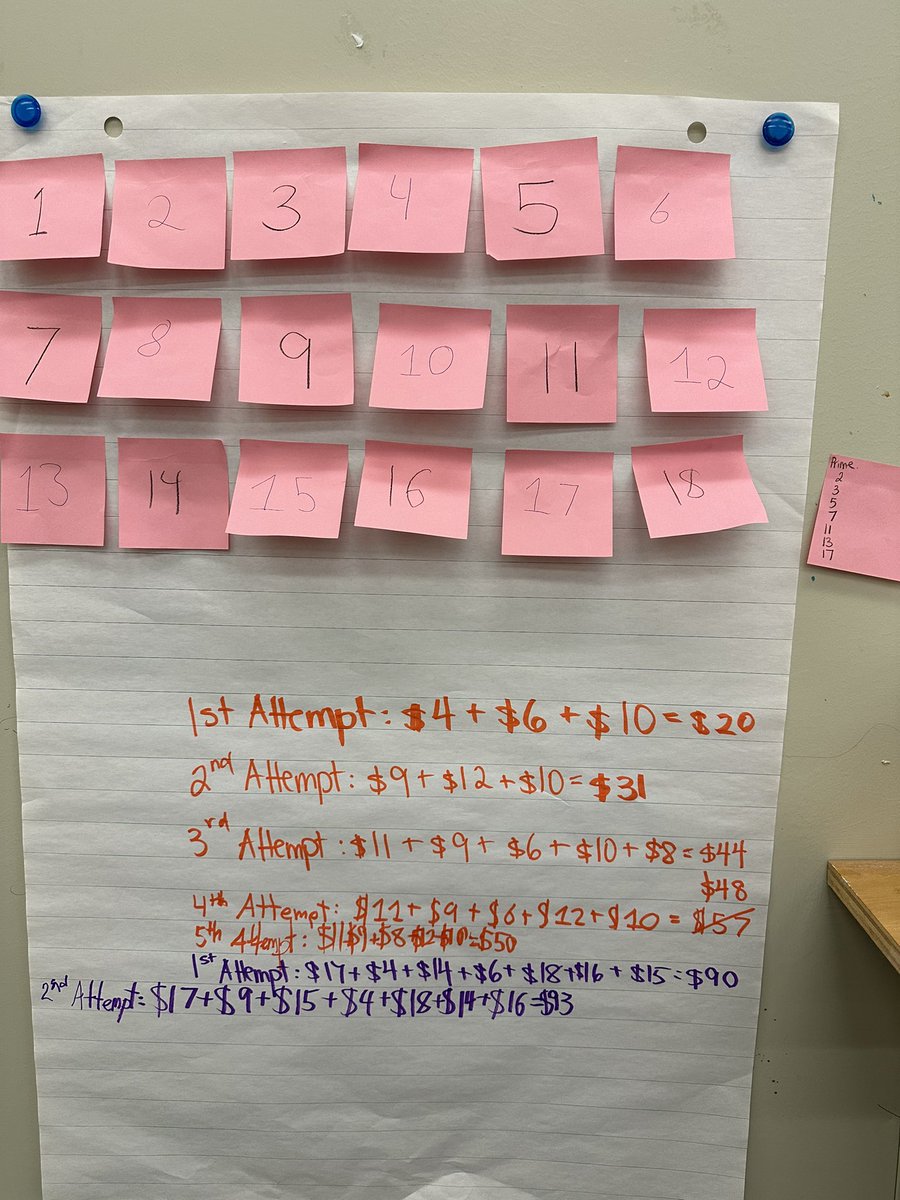 1 2 3 4 5 6
7 8 9 10 11 12
13 14 15 16 17 18
Prime.
2
3
5
7
11
13
17
1st Attempt: $4 + $6 + $10 = $20
2nd Attempt: $9 + $12 + $10 = $31
3rd Attempt: $11 + $9 + $6 + $10 + $8 = $44
$48
4th Attempt: $11 + $9 + $6 + $12 + $10 =
5th Attempt: $11 $9 + $8 + $12 + $10 = $50
1st Attempt: $17 + $4 + $14 + $6 + $18 + $16 + $15 = $90
2nd Attempt: $17 + $9 + $15 + $4 + $18 + $14 + $16 = $93